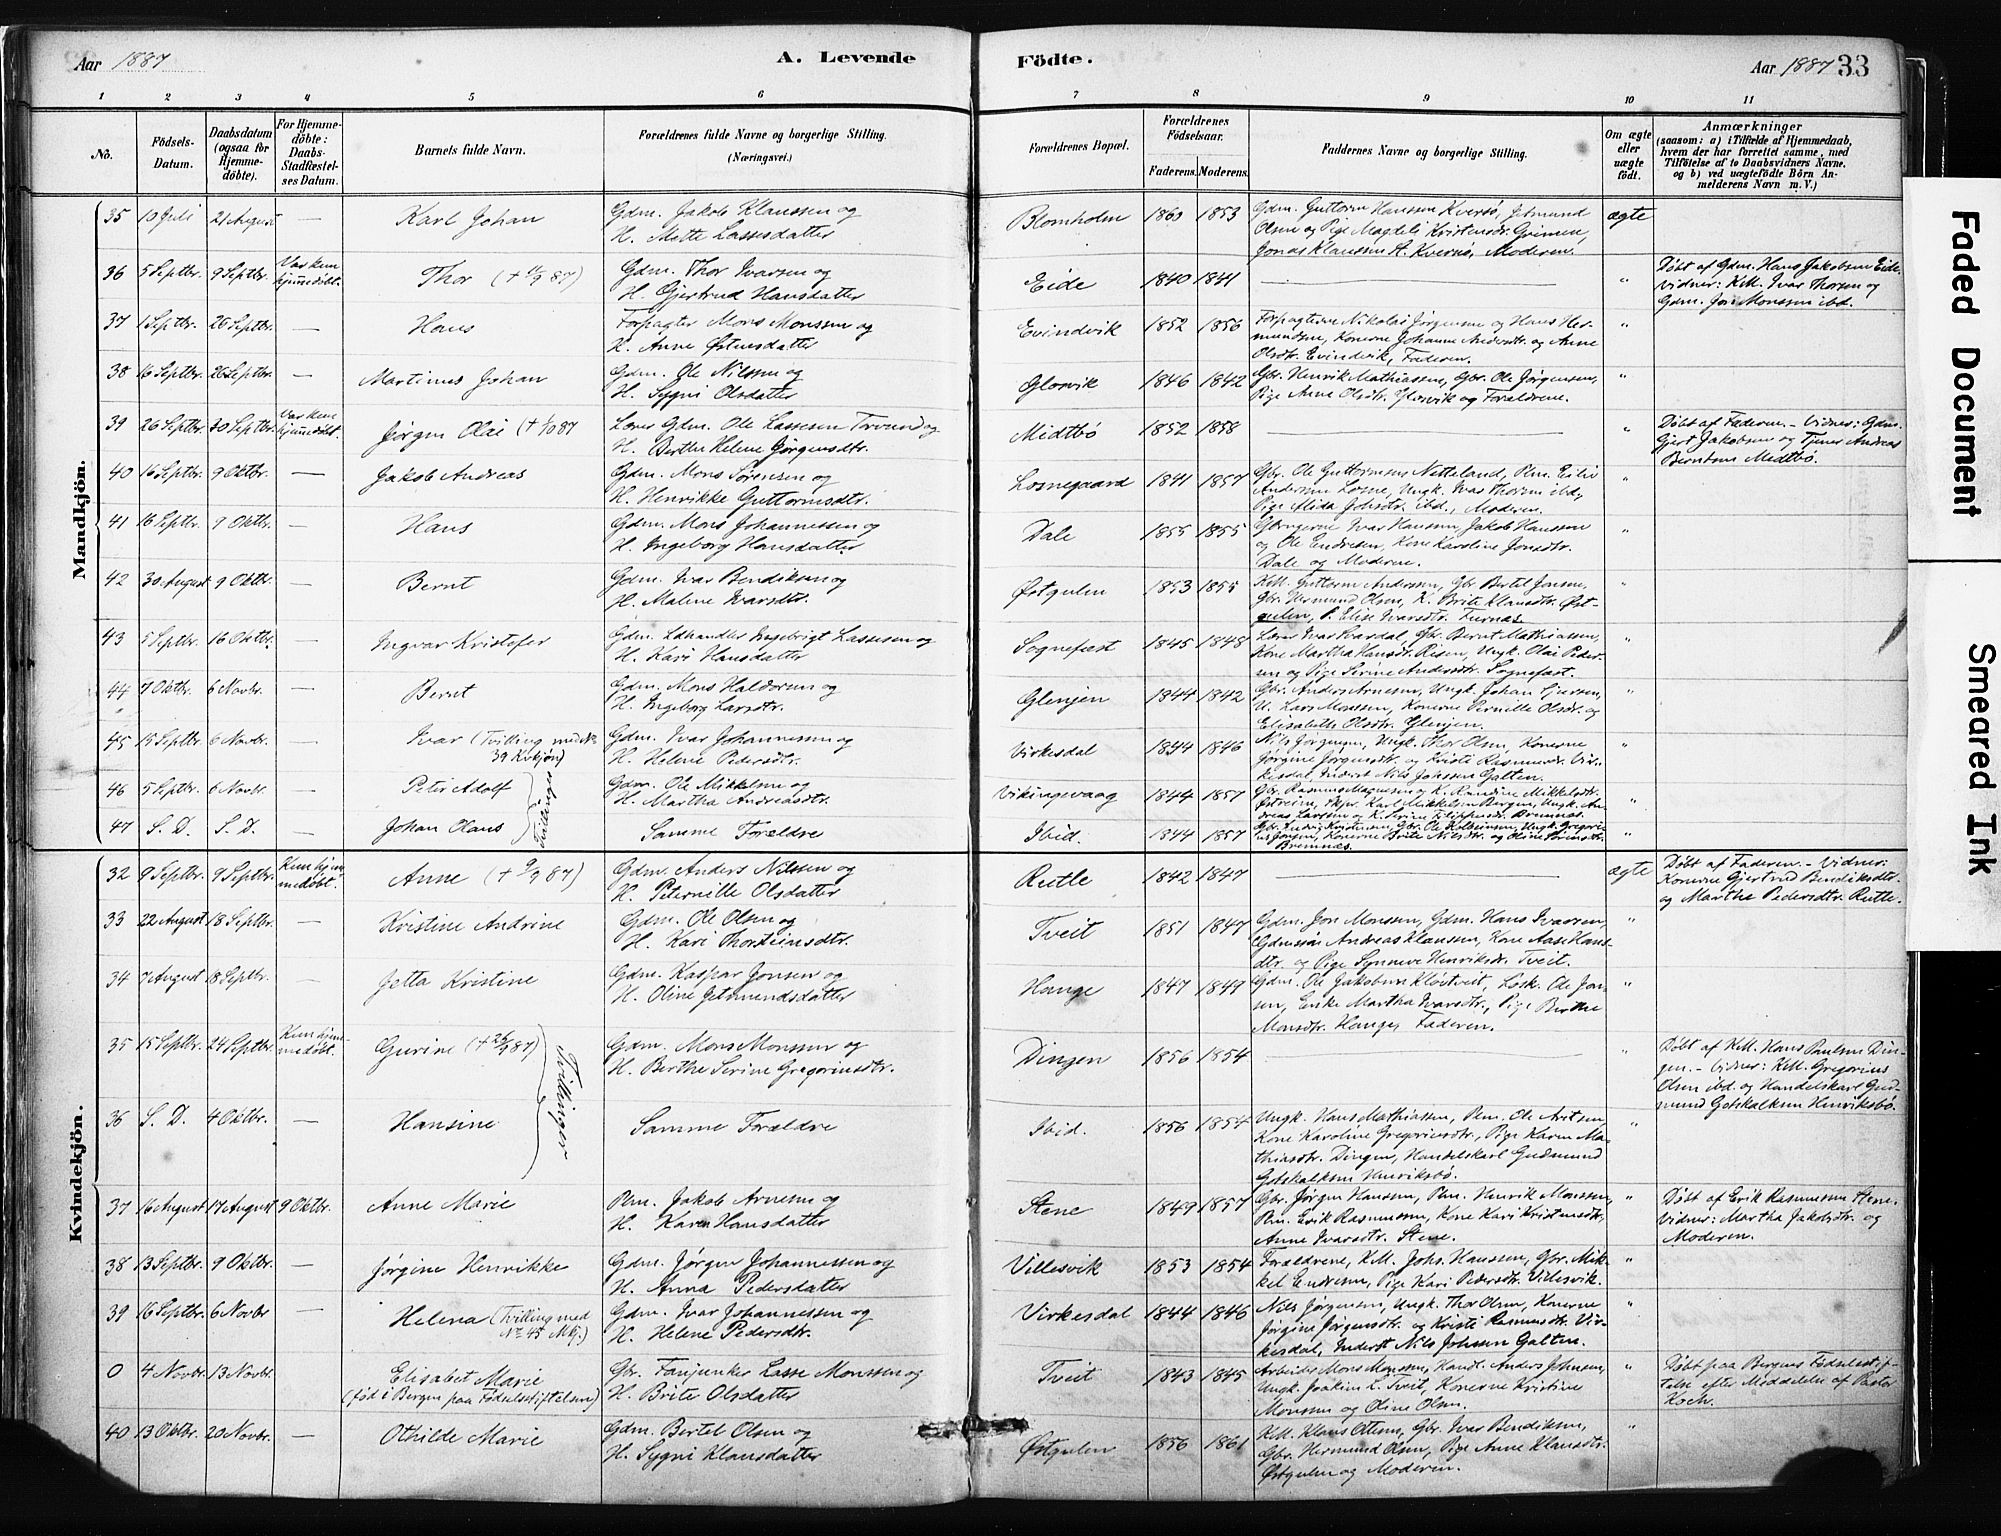 Aar 1887
A. Levende
Födte.
Aar 1887 33
1 2 3 4 5 6 7 8 9 10 11
No.
Födsels-Datum.
Daabsdatum (ogsaa for Hjemme-döbte).
For Hjemme-döbte: Daabs-Stadfæstel-ses Datum.
Barnets fulde Navn.
Forældrenes fulde Navne og borgerlige Stilling.
(Næringsvei.)
Forældrenes Bopæl.
Forældrenes Födselsaar.
Faderens. Moderens.
Faddernes Navne og borgerlige Stilling.
Om ægte eller uægte födt.
Anmærkninger
(saasom: a) i Tilfælde af Hjemmedaab,
hvem der har forrettet samme, med
Tilföielse af to Daabsvidners Navne,
og b) ved uægtefödte Börn An-
melderens Navn m. V.)
Mandkjön.
35 10 Juli 21 August — Karl Johan Gdm. Jakob Klaussen og
H. Mette Lassesdatter
Blomholm 1860 1853 Gdm. Guttorm Hanssen Kversø, Jetmund
Olsen og Pige Magdeli Kristensdtr. Grimen,
Jonas Klaussen St. Kversø, Moderen.
ægte
36 5 Septbr. 9 Septbr. Var kun hjemmedøbt. Thor (+ 9/9 87) Gdm. Thor Ivarsen og
H. Gjertrud Hansdatter
Eide 1840 1841 — "
Døbt af Gdm. Hans Jakobsen Eide.
Vidner: KM. Ivar Thorsen og
Gdm. Jon Monssen ibd.
37 1 Septbr. 26 Septbr. — Hans Forpagter Mons Monssen og
H. Anne Østensdatter
Evindvik 1852 1856 Forpagterne Nikolai Jørgensen og Hans Her-
mundsen, Konerne Johanne Andersdtr. og Anne
Olsdtr. Evindvik, Faderen. "
38 16 Septbr. 26 Septbr. — Martinus Johan Gdm. Ole Nilssen og
H. Sygni Olsdatter
Glosvik 1846 1842 Gbr. Henrik Mathiassen, Gbr. Ole Jørgensen,
Pige Anne Olsdtr. Glosvik og Forældrene. "
39 26 Septbr. 30 Septbr. Var kun hjemmedøbt. Jørgen Olai (+ 1/10 87 Lærer Gdm. Ole Lassesen og
H. Berthe Helene Jørgensdtr.
Midtbö 1852 1858 — "
Døbt af Faderen. - Vidner: Gdm.
Gjert Jakobsen og Tjener Andreas
Berntsen Midtbö.
40 16 Septbr. 9 Oktbr. — Jakob Andreas Gdm. Mons Sørensen og
H. Henrikke Guttormsdtr.
Losnegaard 1841 1857 Gbr. Ole Guttormsen Netteland, Pm. Eilir
Anderssen Losne, Ungk. Ivar Thorsen ibd.,
Pige Alida Johsdtr. ibd., Moderen. "
41 16 Septbr. 9 Oktbr. — Hans Gdm. Mons Johannessen og
H. Ingeborg Hansdatter
Dale 1855 1855 Gbrugerne Ivar Hanssen, Jakob Hanssen
og Ole Endresen, Kone Karoline Jonsdtr.
Dale og Moderen. "
42 30 August 9 Oktbr. — Bernt Gdm. Ivar Bendiksen og
H. Malene Ivarsdtr.
Østgulen 1853 1855 KM. Guttorm Andersen, Gbr. Bertel Jonsen,
Gbr. Hermund Olsen, K. Brite Klausdtr. Øst-
gulen, P. Elise Ivarsdtr. Furnæs "
43 5 Septbr. 16 Oktbr. — Ingvar Kristofer Gdm. Ldhandler Ingebrigt Lassesen og
H. Kari Hansdatter
Sognefæst 1845 1848 Lærer Ivar , Gbr. Bernt Mathiassen,
Kone Martha Hansdtr. Risen, Ungk. Olai Peder-
sen og Pige Serine Andersdtr. Sognefæst. "
44 7 Oktbr. 6 Novbr. — Bernt Gdm. Mons Haldorsen og
H. Ingeborg Larsdtr.
Glenjen 1844 1842 Gbr. Anders Arnesen, Ungk. Johan ,
U. Lars Monssen, Konerne Pernille Olsdtr. og
Elisabethe Olsdtr. Glenjen. "
45 15 Septbr. 6 Novbr. Ivar (Tvilling med No
39 Kvkjön) Gdm. Ivar Johannessen og
H. Helene Pedersdtr.
Virkesdal 1844 1846 Nils Jørgensen, Ungk. Thor Olsen, Konerne
Jørgine Jørgensdtr. og Kristi Rasmusdtr. Vir-
kesdal, Inderst Nils Johssen Galten. "
46 5 Septbr. 6 Novbr. — Peter Adolf Gdm. Ole Mikkelsen og
H. Martha Andreasdtr.
Vikingevaag 1844 1857 Gbr. Rasmus Magnesen og K. Randine Mikkelsdtr.
Østreim, Skpr. Karl Mikkelsen Bergen, Ungk. An-
dreas Larssen og K. Serine Filippusdtr. Bremnes. "
47 S. D. S. D. — Johan Olaus Tvillinger Samme Forældre
Ibid. 1844 1857 Gbr. Ludvig Kristensen, Gbr. Ole Kolbeinsen, Ungk. Gregori-
us Jørgen, Konerne Brite Nilsdtr. og Oline Sørensdtr.
Bremnæs. "
Kvindekjön.
32 9 Septbr. 9 Septbr. Kun hjem-medøbt. Anne (+ 9/9 87) Gdm. Anders Nilssen og
H. Peternille Olsdatter
Rutle 1842 1847 ægte
Døbt af Faderen. - Vidner:
Konerne Gjertrud Bendiksdtr.
og Martha Pedersdtr. Rutle.
33 22 August 18 Septbr. — Kristine Andrine Gdm. Ole Olsen og
H. Kari Thorsteinsdtr.
Tveit 1851 1847 Gdm. Jon Monssen, Gdm. Hans Ivarsen,
Gdmssøn Andreas Klaussen, Kone Aase Hans-
dtr. og Pige Synneve Henriksdtr. Tveit. "
34 7 August 18 Septbr. — Jetta Kristine Gdm. Kaspar Jonsen og
H. Oline Jetmundsdatter
Hauge 1847 1847 Gdm. Ole Jakobsen Kløvtveit, Løsk. Ole Jon-
sen, Enke Martha Ivarsdtr., Pige Birthe
Monsdtr. Hauge, Faderen. "
35 15 Septbr. 24 Septbr. Kun hjem-medøbt. Gurine (+ 26/9 87) Gdm. Mons Monssen og
H. Berthe Serine Gregoriusdtr.
Dingen 1856 1854 — "
Døbt af KM. Hans Paulsen Din-
gen. - Vidner: KM. Gregorius
Olsen ibd. og Handelskarl Gud-
mund Gotskalksen Henriksbø.
36 S. D. 4 Oktbr. — Hansine Tvillinger Samme Forældre
Ibid. 1856 1854 Ungk. Hans Mathiassen, Pm. Ole Aritsen,
Kone Karoline Gregoriusdtr., Pige Karen Ma-
thiasdtr. Dingen, Handelskarl Gudmund
Gotskalksen Henriksbø. "
37 16 August 17 August 9 Oktbr. Anne Marie Plm. Jakob Arnesen og
H. Karen Hansdatter
Stene 1849 1857 Gbr. Jørgen Hanssen, Plm. Henrik Monssen,
Plm. Erik Rasmussen, Kone Kari Kristensdtr.,
Anne Ivarsdtr. Stene. "
Døbt af Erik Rasmussen Stene.
Vidner: Martha Jakobsdtr. og
Moderen.
38 13 Septbr. 9 Oktbr. — Jørgine Henrikke Gdm. Jørgen Johannessen og
H. Anna Pedersdatter
Villesvik 1853 1854 Forældrene, KM. Johs. Hanssen, Gbr. Mik-
kel Endresen, Pige Kari Pedersdtr. Villesvik. "
39 16 Septbr. 6 Novbr. — Helena (Tvilling med
No 45 Mkj.) Gdm. Ivar Johannessen og
H. Helene Pedersdtr.
Virkesdal 1844 1846 Nils Jørgensen, Ungk. Thor Olsen, Konerne
Jørgine Jørgensdtr. og Kristi Rasmusdtr. Vir-
kesdal, Inderst Nils Johssen Galten. "
0 4 Novbr. 13 Novbr. Elisabet Marie
(fød i Bergen paa Fødselsstiftelsen) Gbr. Fanjunker Lasse Monssen og
H. Brite Olsdatter
Tveit 1843 1845 Arbeider Mons Monssen, Handl. Anders Johnsen,
Ungk. Joakim L. Tveit, Konerne Kristine
Monssen og Oline Olsen. "
Døbt paa Bergens Fødselsstif-
telse efter Meddelelse af Pastor
Koch.
40 13 Oktbr. 20 Novbr. — Othilde Marie Gdm. Bertel Olsen og
H. Sygni Klausdatter
Østgulen 1856 1861 KM. Klaus Ottesen, Gbr. Ivar Bendiksen,
Gbr. Hermund Olsen, Pige Anne Klausdtr.
Østgulen og Moderen. "
Faded Document
Smeared Ink